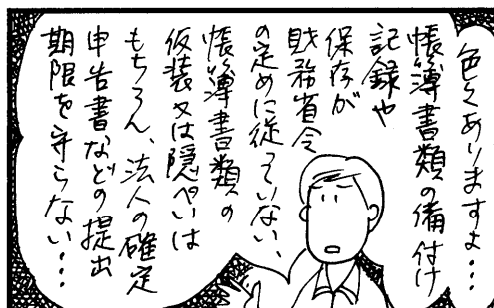 色々ありますよ…
帳簿書類の備付け
記録や
保存が
財務省令
の定めに従っていない、
帳簿書類の
仮装又は隠ぺいは
もちろん、法人の確定
申告書などの提出
期限を守らない…